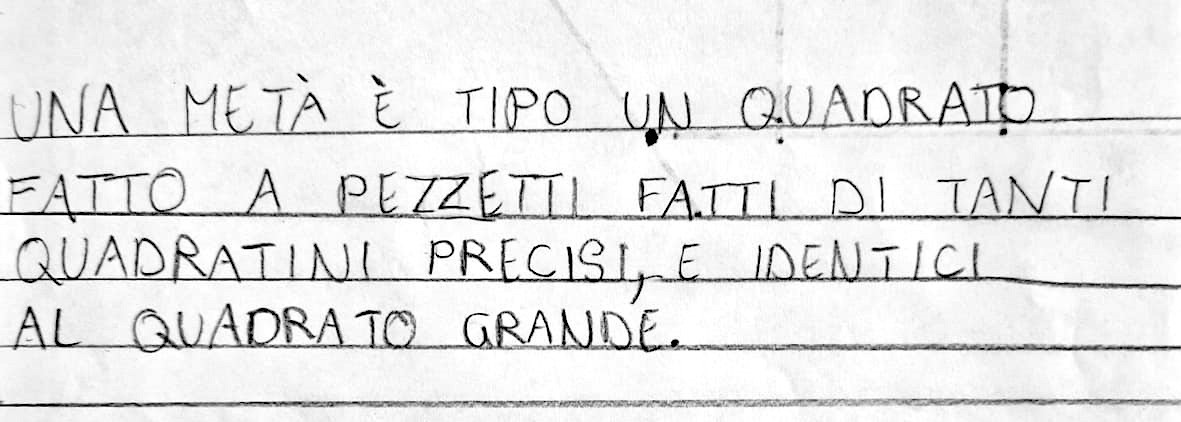 UNA METÀ È TIPO UN QUADRATO
FATTO A PEZZETTI FATTI DI TANTI
QUADRATINI PRECISI, E IDENTICI
AL QUADRATO GRANDE.